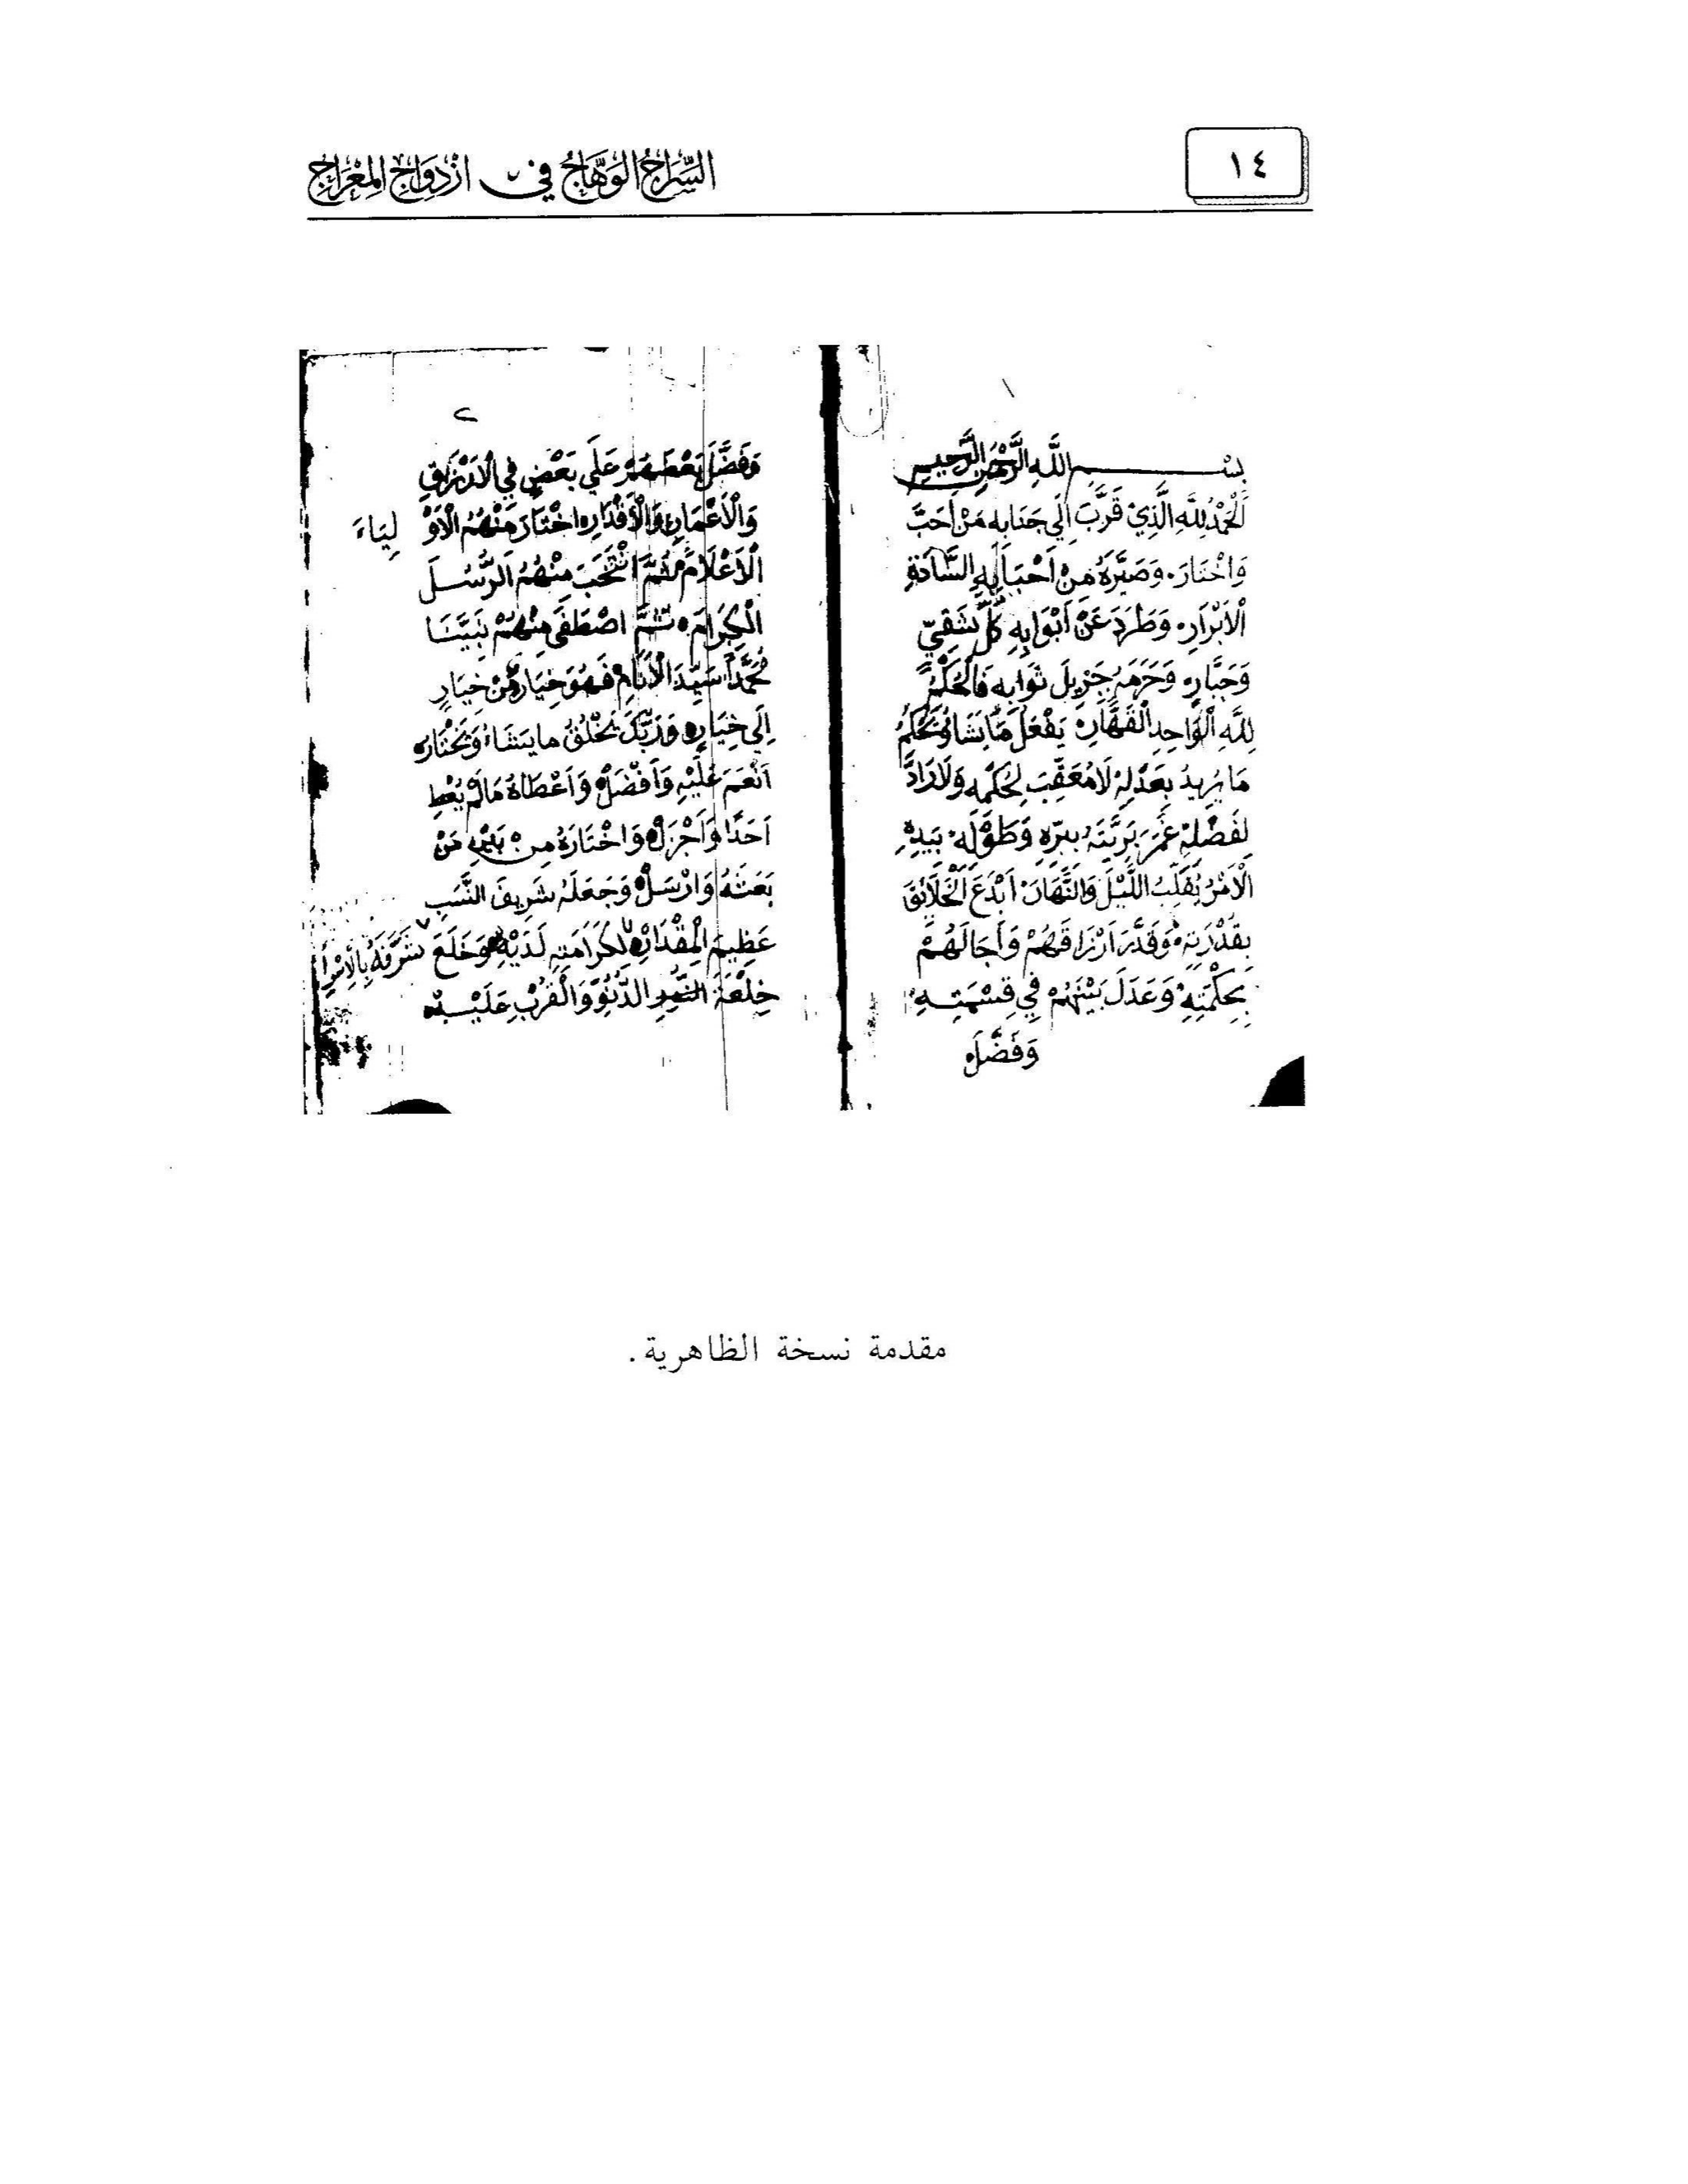 ١٤
السِّرَاجُ الوَهَّاجُ فِي ازْدِوَاجِ المِعْرَاجِ
١
بِسْمِ اللَّهِ الرَّحْمَنِ الرَّحِيمِ
الْحَمْدُ لِلَّهِ الَّذِيْ قَرَّبَ اِلَي جَنَابِهِ مَنْ اَحَبَّ
وَاخْتَارَ. وَصَيَّرَهُ مِنْ اَحْبَابِهِ السَّادَةِ
الْاَبْرَارِ. وَطَرَدَ عَنْ اَبْوَابِهِ كُلَّ شَقِيٍّ
وَجَبَّارٍ. وَحَرَمَهُ جَزِيلَ ثَوَابِهِ فَالْحُكْمُ
لِلَّهِ الْوَاحِدِ الْقَهَّارِ. يَفْعَلُ مَا يَشَاءُ وَيَحْكُمُ
مَا يُرِيدُ بِعَدْلِهِ لَا مُعَقِّبَ لِحُكْمِهِ وَلَا رَادَّ
لِفَضْلِهِ غَمَرَ بَرِيَّتَهُ بِبِرِّهِ وَطَوْلِهِ. بِيَدِهِ
الْاَمْرُ يُقَلِّبُ اللَّيْلَ وَالنَّهَارَ. اَبْدَعَ الْخَلَائِقَ
بِقُدْرَتِهِ. وَقَدَّرَ اَرْزَاقَهُمْ وَآجَالَهُمْ
بِحِكْمَتِهِ. وَعَدَلَ بَيْنَهُمْ فِي قِسْمَتِهِ.
وَفَضَّلَ
٢
وَفَضَّلَ بَعْضَهُمْ عَلَي بَعْضٍ فِي الْاَرْزَاقِ
وَالْاَعْمَارِ وَالْاَقْدَارِ. اخْتَارَ مِنْهُمُ الْاَوْلِيَاءَ
الْاَعْلَامَ ثُمَّ انْتَخَبَ مِنْهُمُ الرُّسُلَ
الْكِرَامَ. ثُمَّ اصْطَفَى مِنْهُمْ نَبِيَّنَا
مُحَمَّدًا سَيِّدَ الْاَنَامِ فَهُوَ خِيَارٌ مِّنْ خِيَارٍ
اِلَي خِيَارٍ. وَرَبُّكَ يَخْلُقُ مَا يَشَاءُ وَيَخْتَارُ.
اَنْعَمَ عَلَيْهِ وَاَفْضَلَ. وَاَعْطَاهُ مَا لَمْ يُعْطِ
اَحَدًا وَاَجْزَلَ. وَاخْتَارَهُ مِنْ بَيْنِ مَنْ
بَعَثَهُ وَاَرْسَلَ. وَجَعَلَهُ شَرِيفَ النَّسَبِ
عَظِيمَ الْمِقْدَارِ. لِكَرَامَتِهِ لَدَيْهِ. وَخَلَعَ
خِلْعَةَ الدُّنُوِّ وَالْقُرْبِ عَلَيْهِ.
شَرَّفَهُ بِالْاِسْرَا
مقدمة نسخة الظاهرية.